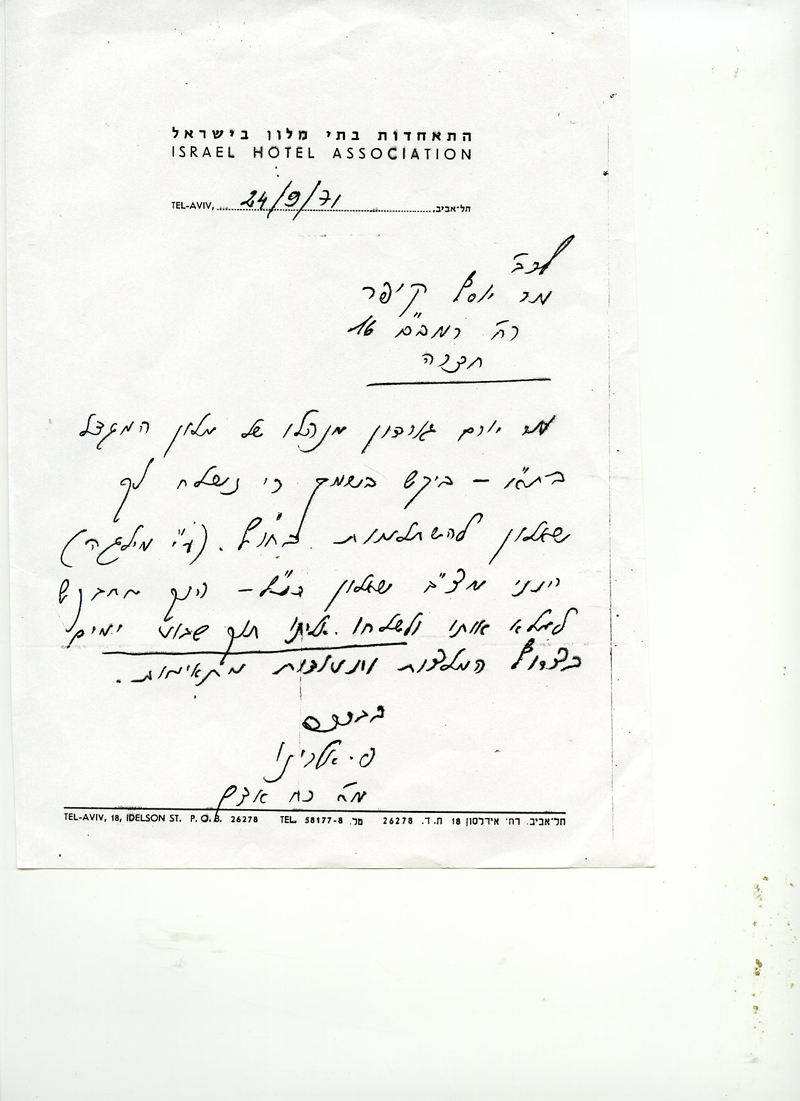 התאחדות בתי מלון בישראל
ISRAEL HOTEL ASSOCIATION
TEL-AVIV, 24/9/71 תל־אביב,
לכב'
מר יוסף קיפר
רח' רמב"ם 16
חדרה
מר יורם גורדון מנהלו של מלון המגדל
בת"א – ביקש בשמך כי נשלח לך
שאלון להשתלמות בחו"ל. (ע"י מילגה)
הינני מצ"ב שאלון כנ"ל – הינך מתבקש
למלא אותו ולשלחו אלינו תוך שבוע ימים
בצרוף המלצות ותעודות מתאימות.
בברכה
פ.
מח' כח אדם
TEL-AVIV, 18, IDELSON ST. P. O. B. 26278 TEL. 58177-8 טל. תל־אביב. רח' אידלסון 18 ת. ד. 26278